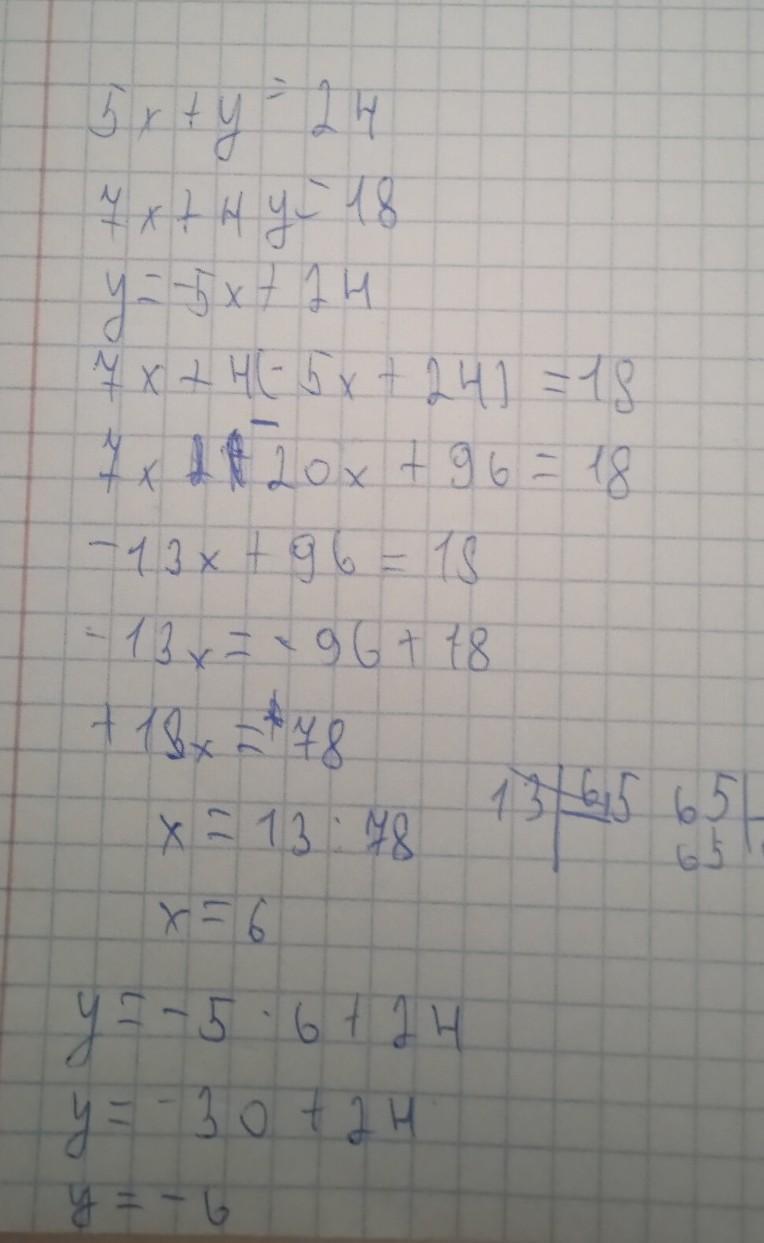 5x + y = 24
7x + 4y = 18
y = -5x + 24
7x + 4(-5x + 24) = 18
7x - 20x + 96 = 18
-13x + 96 = 18
-13x = -96 + 18
+13x = +78
x = 13 : 78
13 65 65
65
x = 6
y = -5 · 6 + 24
y = -30 + 24
y = -6